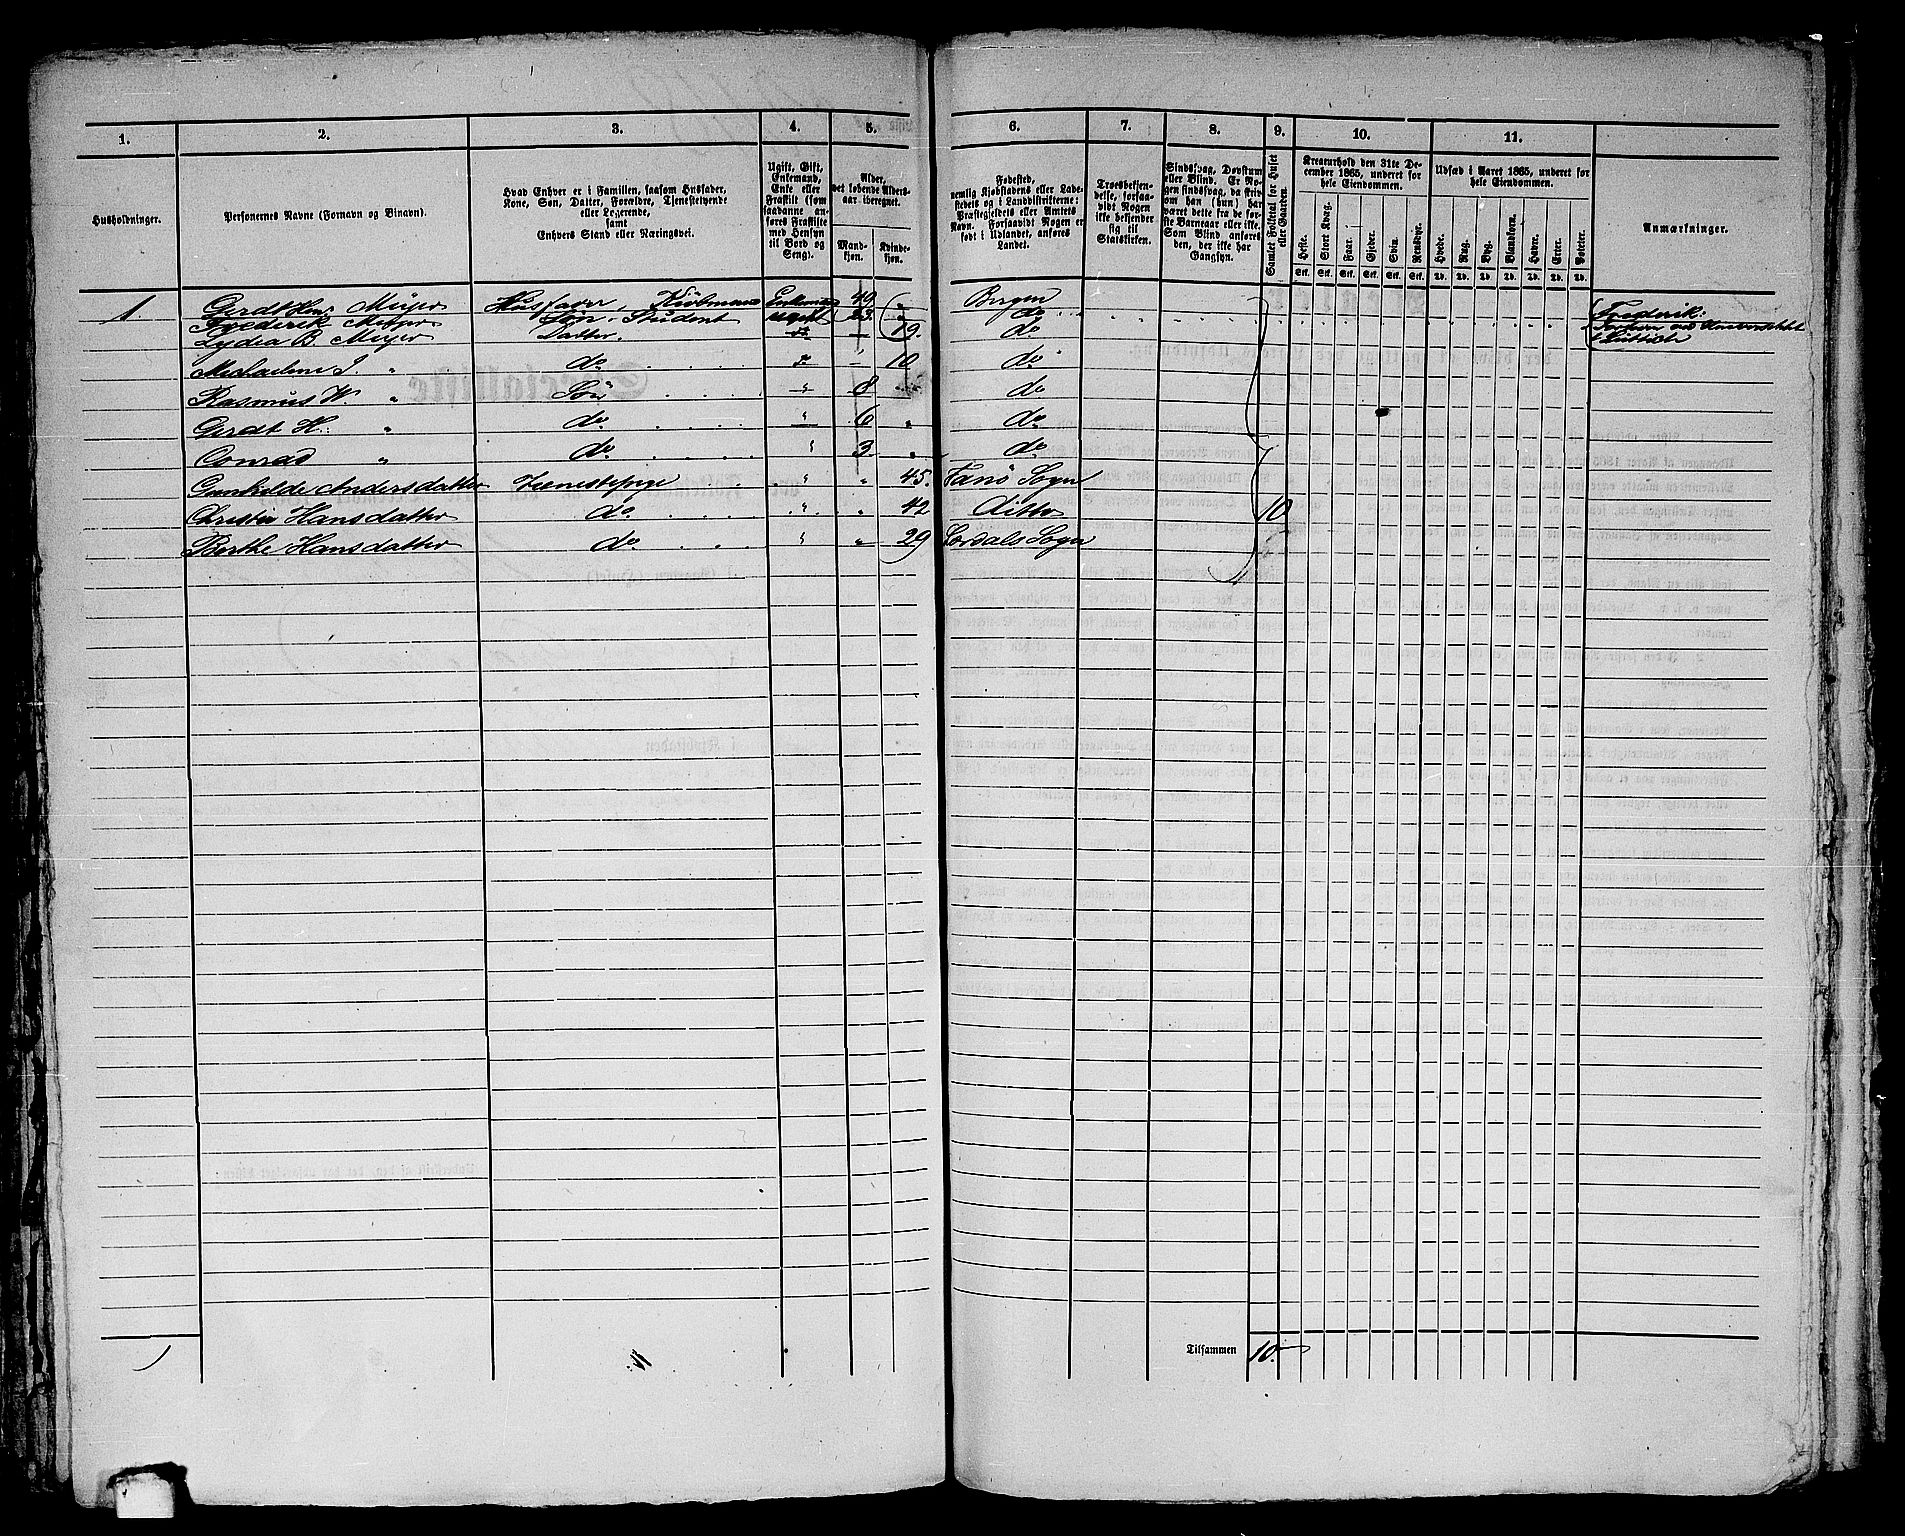 1. 2. 3. 4. 5. 6. 7. 8. 9. 10. 11.
Husholdninger.
Personernes Navne (Fornavn og Binavn).
Hvad Enhver er i Familien, saasom Husfader,
Kone, Søn, Datter, Forældre, Tjenestetyende
eller Logerende,
samt
Enhvers Stand eller Næringsvei.
Ugift, Gift,
Enkemand,
Enke eller
Fraskilt (som
saadanne an-
føres Fraskilte
med Hensyn
til Bord og
Seng).
Alder,
det løbende Alders-
aar iberegnet.
Mand-
kjøn.
Kvinde-
kjøn.
Fødested,
nemlig Kjøbstadens eller Lade-
stedets og i Landdistrikterne:
Præstegjeldets eller Amtets
Navn. Forsaavidt Nogen er
født i Udlandet, anføres
Landet.
Troesbekjen-
delse, forsaa-
vidt Nogen
ikke bekjender
sig til
Statskirken.
Sindssvag, Døvstum
eller Blind. Er No-
gen sindssvag, da skri-
ves om han (hun) har
været dette fra de før-
ste Barneaar eller ikke.
Som Blind anføres
den, der ikke har
Gangsyn.
Samlet Folketal for Huset
eller Gaarden.
Kreaturhold den 31te De-
cember 1865, underet for
hele Eiendommen.
Heste. Stort Kvæg. Faar. Gjeder. Svin. Rensdyr.
Stk. Stk. Stk. Stk. Stk. Stk.
Udsæd i Aaret 1865, underet for
hele Eiendommen.
Hvede. Rug. Byg. Blandkorn. Havre. Erter. Poteter.
Td. Td. Td. Td. Td. Td. Td.
Anmærkninger.
1. Gerdt Hen: Meyer Husfader, Kiøbmand Enkemand 49 " Bergen
Frederik Meyer Søn, Student ugift 23 " do Frederik:
Lydia B. Meyer Datter. do 19. do
Michaeline J. " do " 10 do
Rasmus W. " Søn " 8 do
Gerdt H: " do " 6 " do
Conrad " do " 3 " do
Gunhilde Andersdatter Tienestepige " " 45. Fanø Sogn
Christie Hansdatter do " " 42 ditto 10
Berthe Hansdatter do " " 29
1
Tilsammen 10.